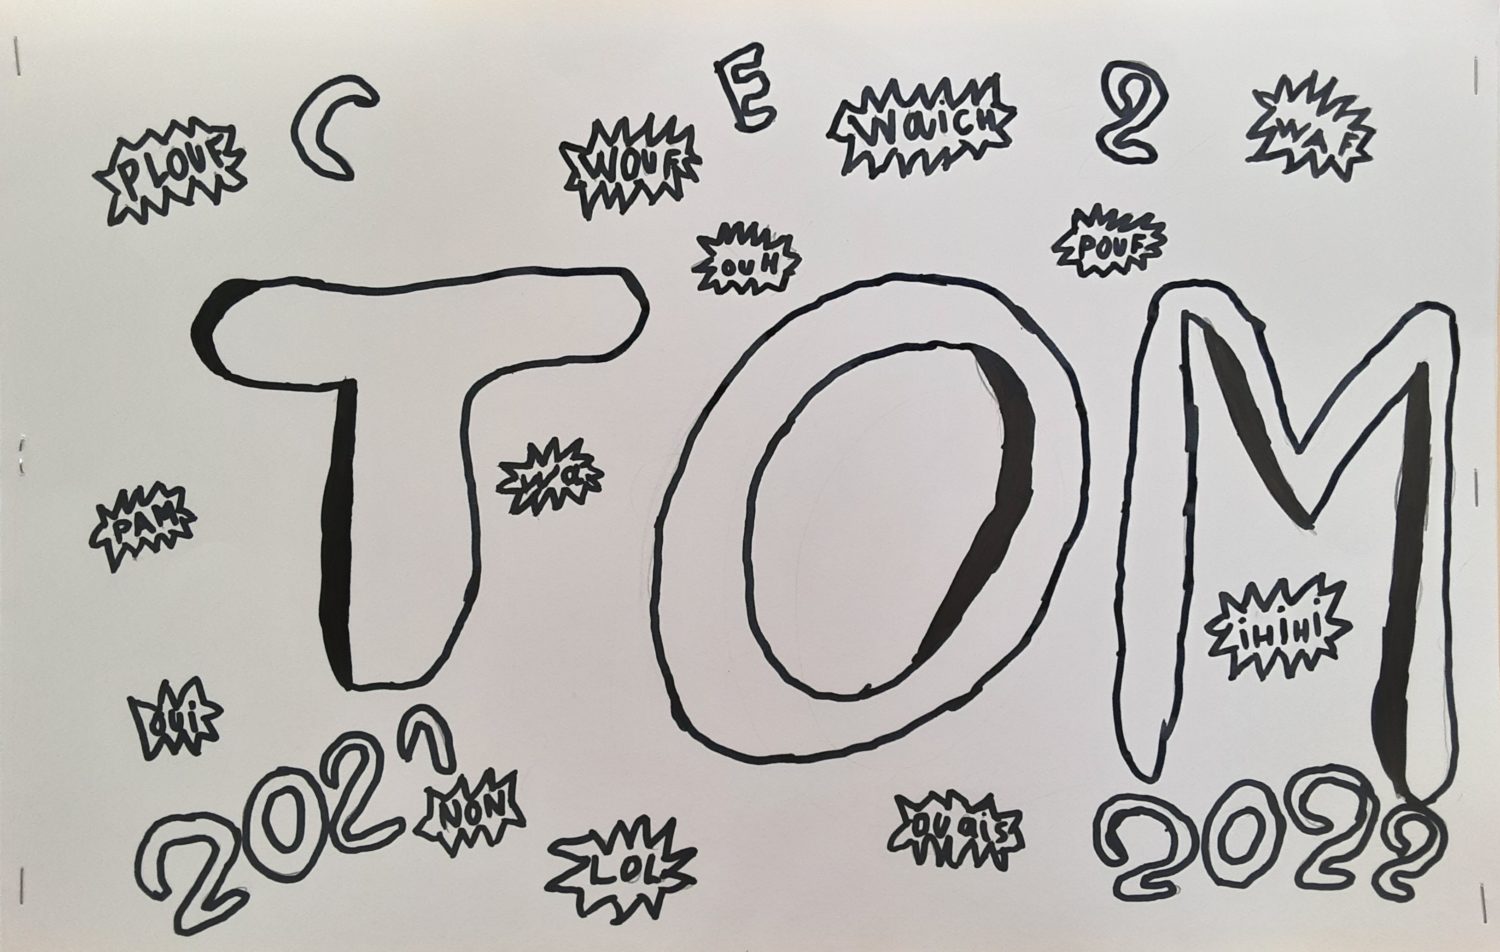 C E 2
PLOUF WOUF WaiCH WAF
OUH POUF
TOM
Wa
PAM
iHiHi
oui
2021 NON 2022
LOL OUais